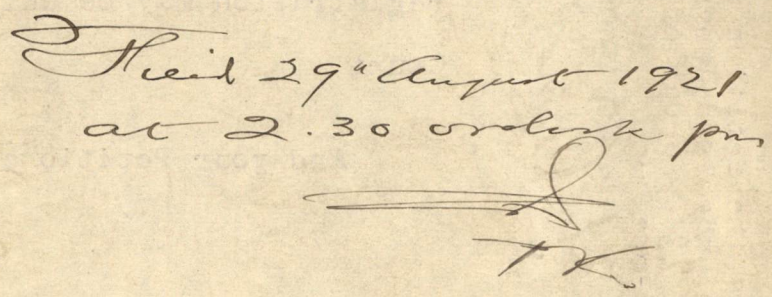 Filed 29" August 1921
at 2.30 oclock pm